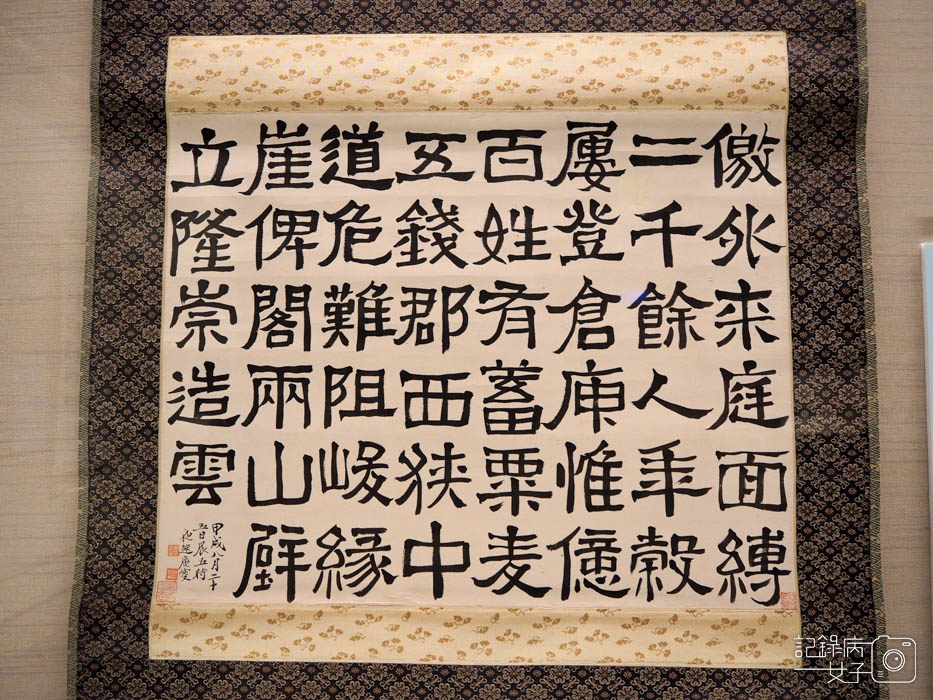 儌外来庭面縛
二千餘人年穀
屢登倉庾惟億
百姓有蓄粟麦
五錢郡西狹中
道危難阻峻緣
崖俾閣兩山壁
立隆崇造雲
甲戌八月二十
五日晨
夜起庵
記錄病
女子